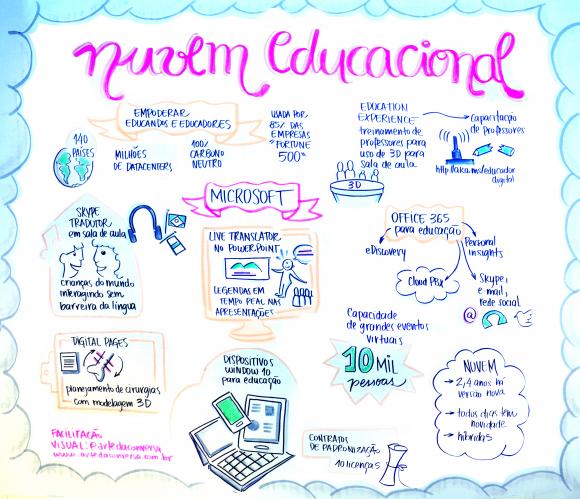 nuvem educacional
EMPODERAR
EDUCANDOS E EDUCADORES
140
PAÍSES
MILHÕES
DE DATACENTERS
100%
CARBONO
NEUTRO
USADA POR
85% DAS
EMPRESAS
"FORTUNE
500"
EDUCATION
EXPERIENCE
treinamento de
professores para
uso de 3D para
sala de aula
3D
capacitação
de professores
http://aka.ms/educador
digital
MICROSOFT
SKYPE
TRADUTOR
em sala de aula
crianças do mundo
interagindo sem
barreira da língua
LIVE TRANSLATOR
NO POWERPOINT
LEGENDAS EM
TEMPO REAL NAS
APRESENTAÇÕES
OFFICE 365
para educação
eDiscovery
Cloud PBX
Personal
insights
Skype,
e-mail,
rede social
@
DIGITAL PAGES
planejamento de cirurgias
com modelagem 3D
DISPOSITIVOS
WINDOW 10
para educação
Capacidade
de grandes eventos
virtuais
10 MIL
pessoas
NUVEM
→ 2,4 anos há
versão nova
→ todos dias tem
novidade
→ híbridas
CONTRATOS
DE PADRONIZAÇÃO
10 licenças
FACILITAÇÃO
VISUAL: @artedaconversa
www.artedaconversa.com.br